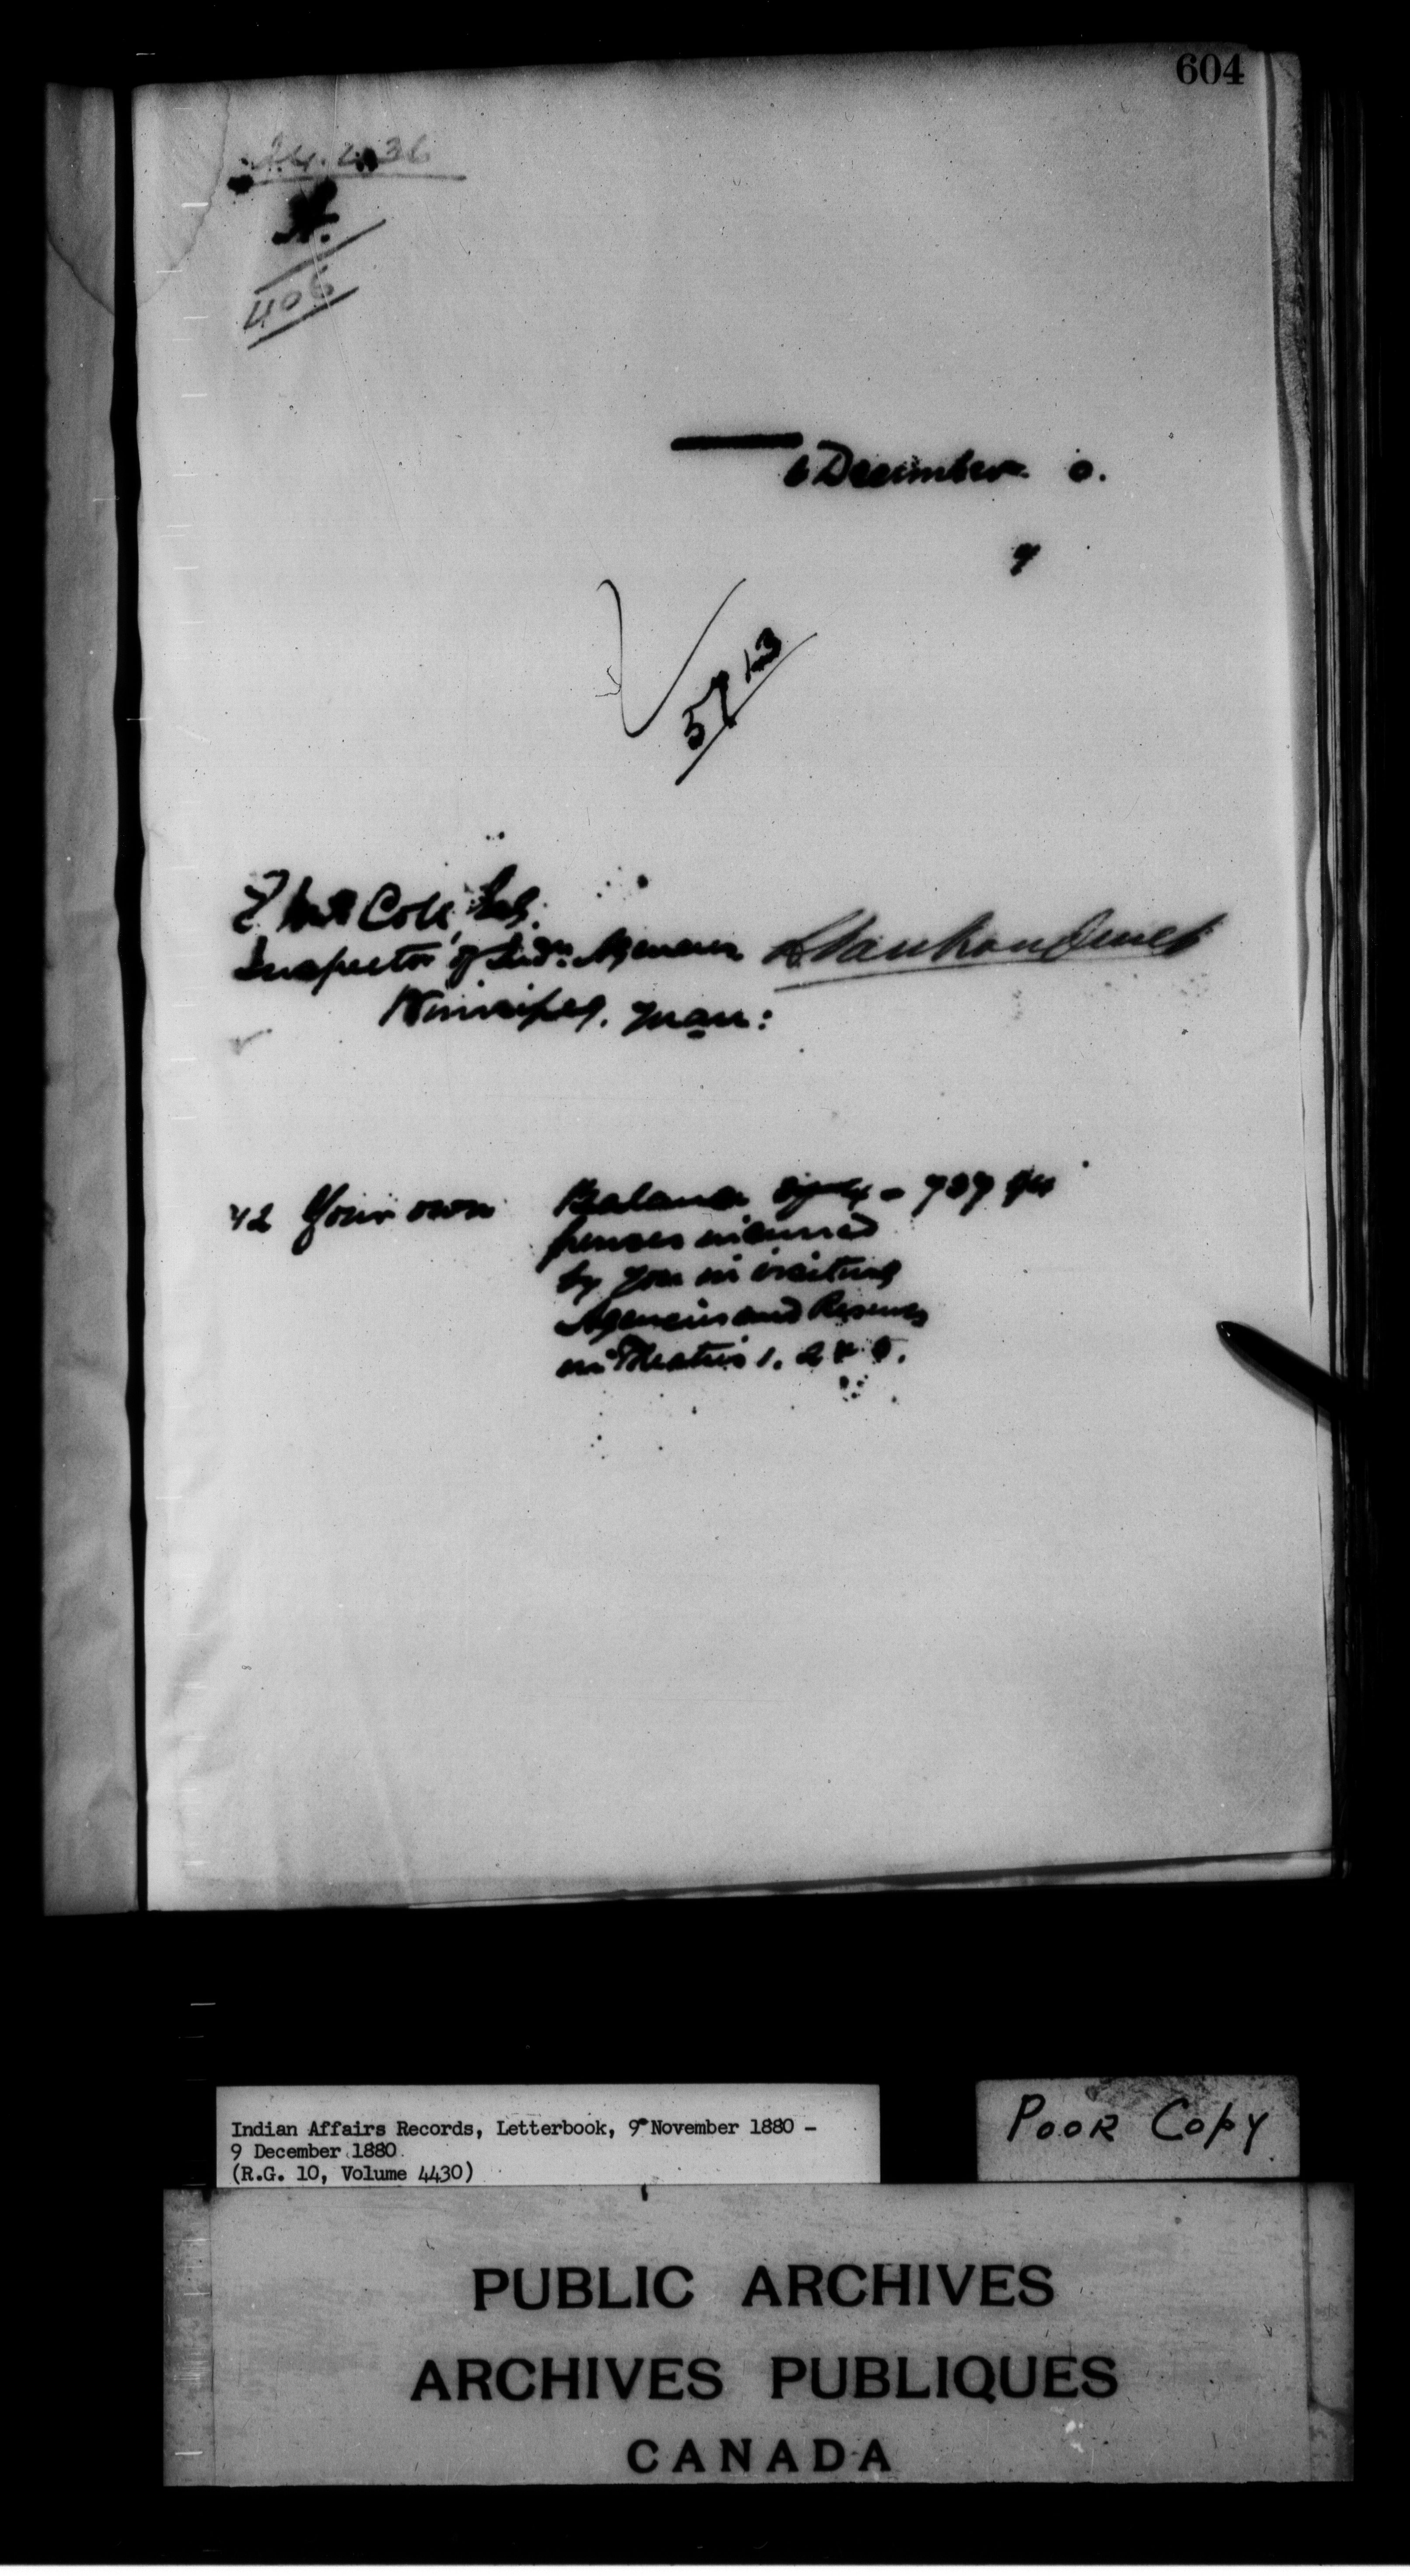 604
406
6 December 0.
9
57 13
E McColl, Esq.
Inspector of Indn. Agencies L Vankoughnet
Winnipeg. Man:
42 Your own Balance of ex- 737
penses incurred
by you in visiting
Agencies and Reserves
in Treaties 1. 2 & 5.
Indian Affairs Records, Letterbook, 9 November 1880 -
9 December 1880
(R.G. 10, Volume 4430)
POOR COPY
PUBLIC ARCHIVES
ARCHIVES PUBLIQUES
CANADA